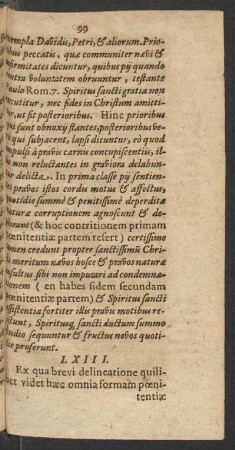 99
exempla Davidis, Petri, & aliorum. Prio-
ribus peccatis, quæ communiter nævi &
infirmitates dicuntur, quibus pÿ quando
contra voluntatem obruuntur, testante
Paulo Rom. 7. Spiritus sancti gratia non
excutitur, nec fides in Christum amitti-
tur, ut sit posterioribus. Hinc prioribus
pii sunt obnoxÿ stantes, posterioribus ve-
qui subjacent, lapsi dicuntur, eò quod
impulsi à pravis carnis concupiscentiis, il-
is non reluctantes in graviora delabun-
tur delicta. In prima classe pÿ sentien-
tes pravos istos cordis motus & affectus,
quotidie summè & penitissimè deperditæ
naturæ corruptionem agnoscunt & de-
plorant (& hoc contritionem primam
pœnitentiæ partem refert) certissimè
tamen credunt propter sanctissimũ Chri-
sti meritum nævos hosce & pravos naturæ
insultus sibi non imputari ad condemna-
tionem ( en habes fidem secundam
pœnitentiæ partem) & Spiritus sancti
assistentia fortiter illis pravis motibus re-
sistunt, Spiritusq; sancti ductum summo
studio sequuntur & fructus novos quoti-
die proferunt.
LXIII.
Ex qua brevi delineatione quili-
bet videt hæc omnia formam pœni-
tentiæ